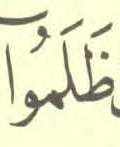 ظَلَمُوٓا